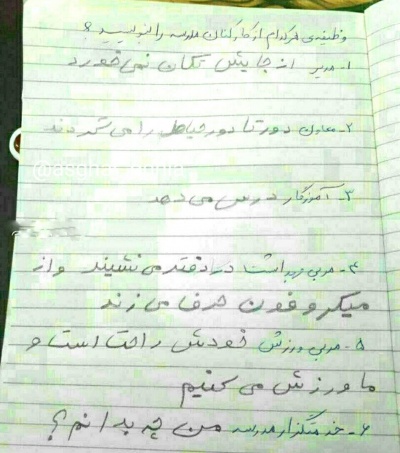 وظیفه‌ی هرکدام از کارکنان مدرسه را بنویسید؟
۱- مدیر از جایش تکان نمی خورد
۲- معاون دور تا دور حیاط را می گردند
۳- آموزگار درس می دهد
۴- مربی بهداشت در دفتر می نشیند و از
میکروفون حرف می زند
۵- مربی ورزش خودش راحت است و
ما ورزش می کنیم
۶- خدمتگزار مدرسه من چه بدانم؟